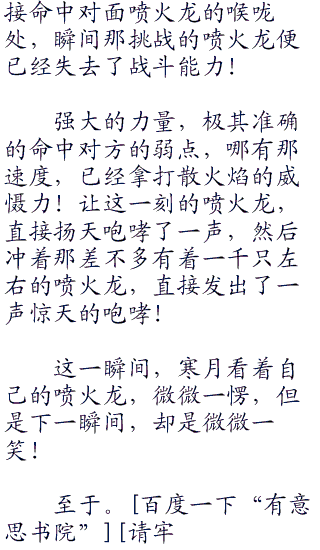 接命中对面喷火龙的喉咙
处，瞬间那挑战的喷火龙便
已经失去了战斗能力！
强大的力量，极其准确
的命中对方的弱点，哪有那
速度，已经拿打散火焰的威
慑力！让这一刻的喷火龙，
直接扬天咆哮了一声，然后
冲着那差不多有着一千只左
右的喷火龙，直接发出了一
声惊天的咆哮！
这一瞬间，寒月看着自
己的喷火龙，微微一愣，但
是下一瞬间，却是微微一
笑！
至于。[百度一下“有意
思书院”][请牢